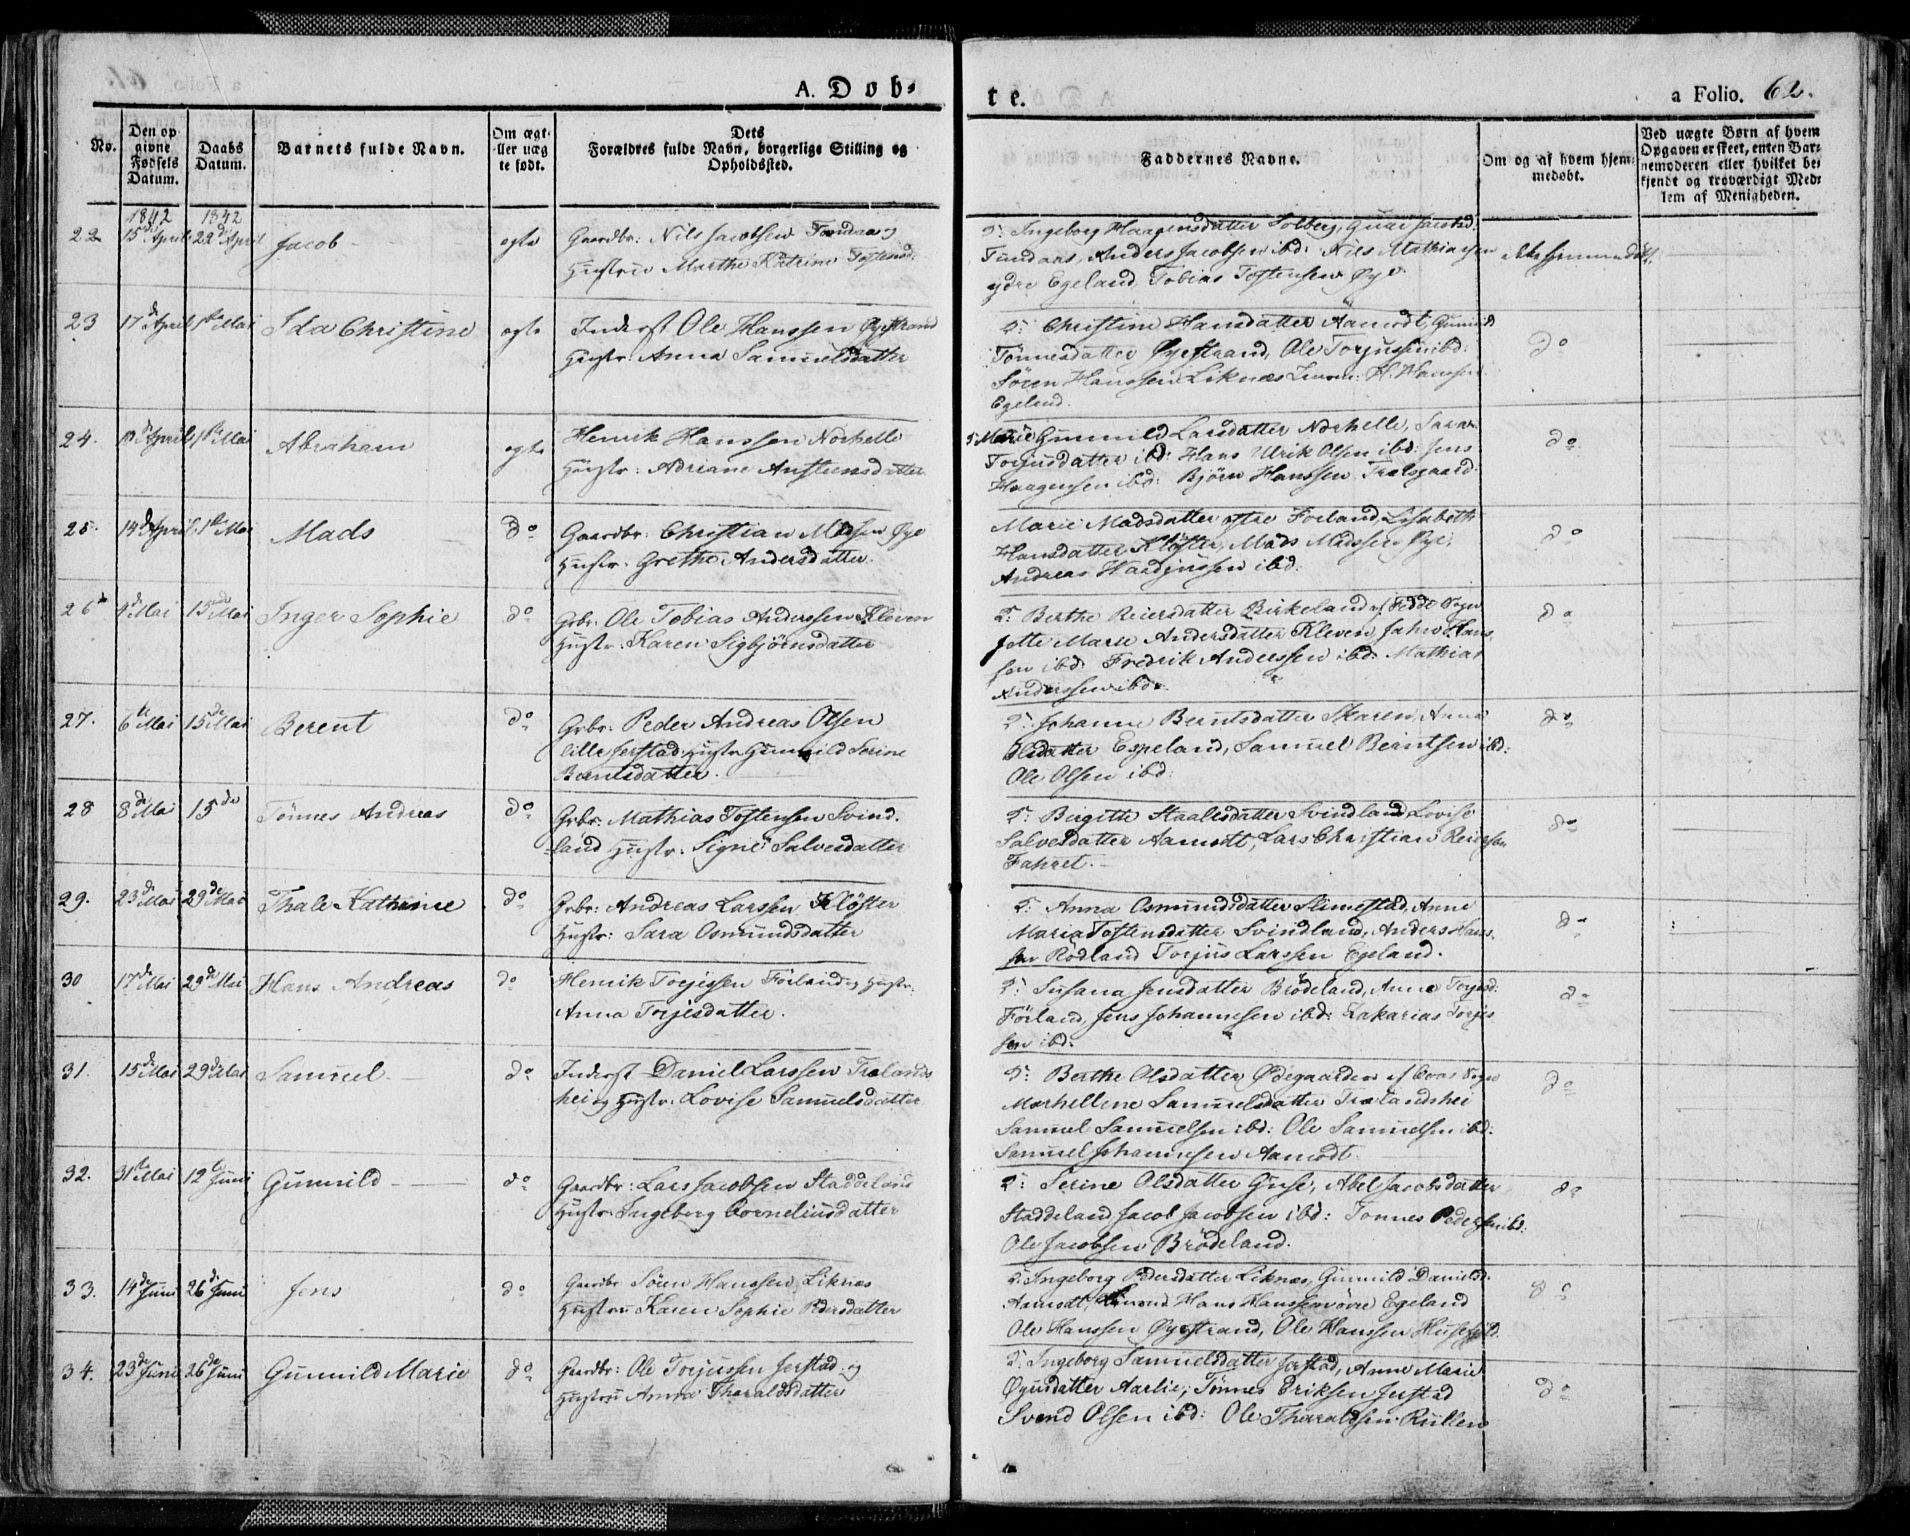 A. Døb-
te.
a Folio. 62.
No.
Den op
givne
Fødsels
Datum.
Daabs
Datum.
Barnets fulde Navn.
Om ægt-
eller uæg
te født.
Dets
Forældres fulde Navn, borgerlige Stilling og
Opholdssted.
Faddernes Navne.
Om og af hvem hjem-
medøbt.
Ved uægte Børn af hvem
Opgaven er skeet, enten Bar-
nemoderen eller hvilket be-
kjendt og troværdigt Med-
lem af Menigheden.
1842 1842
22 15de April 22d April Jacob ægte
Gaardbr: Nils Jacobsen og
Hustrue Marthe Katrine
Ingeborg Haagensdatter Solberg,
Anders Jacobsen ibd: Nils Mathiasen
ydre Egeland, Tobias Tostensen Øye
ikke hjemmedøbt.
23 17de April 1ste Mai Ida Christine ægte
Inderst Ole Hanssen Øyestrand
Hustr: Anna Samuelsdatter
Christine Hansdatter Aamodt, Gunild
Tønnesdatter Øyestrand, Ole Torjusen ibd:
Søren Hanssen Liknæs H. Hanssen
Egeland.
do
24. April 1ste Mai Abraham ægte
Henrik Hanssen Norhelle
Hustr: Adriane Anstensdatter
Marie Gunnild Larsdatter Norhelle, Sara
Torjusdatter ibd: Hans Ulrik Olsen ibd: Jens
Haagensen ibd: Bjørn Hanssen Trælsgaard
do
25. 14de April 1ste Mai Mads do
Gaardbr: Christian Madsen Øye
Hustr. Grethe Andersdatter.
Marie Madsdatter Førland, Lisabeth
Hansdatter Kløster, Mads Madssen Øye,
Andreas ibd:
do
26 4de Mai 15de Mai Inger Sophie do
Grbr: Ole Tobias Anderssen Kleven
Hustr: Karen Sigbjørnsdatter
Berthe Reiersdatter Birkeland af Fedde Sogn
Jotte Marie Andersdatter Kleven, Hans-
sen ibd: Fredrik Anderssen ibd: Mathias
Anderssen ibd:
do
27. 6te Mai 15de Mai Berent do
Grbr: Peder Andreas Olsen
lille Jerstad, Hustr Gunnild Serine
Berntsdatter.
Johanne Berntsdatter Skaren, Anna
Olsdatter Espeland, Samuel Berntsen ibd:
Ole Olsen ibd:
do
28 8de Mai 15de Tønnes Andreas do
Grbr: Mathias Tostensen Svind-
land Hustr. Signe Salvesdatter
Birgitte Staalesdatter Svindland Lovise
Salvesdatter Aamodt, Lars Christian Reiersen
Fahret.
do
29. 23de Mai 29de Mai Thale Kathrine do
Grbr: Andreas Larssen Kløster
Hustr: Sara Osmundsdatter
Anna Osmundsdatter Slimestad, Anne
Maria Tostensdatter Svindland, Anders Hans-
sen Rødland Torjus Larssen Egeland.
do
30 17de Mai 29de Mai Hans Andreas do
Henrik Torjessen Førland og Hustr:
Anna Torjesdatter.
Susana Jensdatter Brødeland, Anne Torjesd:
Førland, Jens Johannesen ibd: Zakarias Torjes-
sen ibd:
do
31. 15de Mai 29de Mai Samuel do
Inderst Daniel Larssen Trælands
hei og Hustr: Lovise Samuelsdatter
Berthe Olsdatter Ødegaarden af Qvas Sogn
Marhellene Samuelsdatter Trælandshei
Samuel Samuelsen ibd: Ole Samuelsen ibd:
Samuel Johannesen Aamodt
do
32. 31te Mai 12te Juni Gunnild do
Gaardbr: Lars Jacobsen Staddeland
Hustr: Ingeborg Corneliusdatter
Serine Olsdatter Guse, Abel Jacobsdatter
Staddeland Jacob Jacobsen ibd: Tønnes Pedersen ibd:
Ole Jacobsen Brødeland.
do
33. 14de Juni 26de Juni Jens do
Gaardbr Søren Hanssen Liknæs
Hustru Karen Sophie Pedersdatter
Ingeborg Pedersdatter Liknæs, Gunnild Danielsd:
Aamodt, Hans Hanssen øvre Egeland
Ole Hanssen Øyestrand, Ole Hanssen
do
34. 23de Juni 26de Juni Gunnild Marie do
Gaardbr: Ole Torjussen Jerstad og
Hustru Anna Tharaldsdatter
Ingeborg Samuelsdatter Jerstad, Anne Marie
Øyusdatter Aarlie, Tønnes Eriksen Jerstad
Svend Olsen ibd: Ole Tharaldsen Rullen
do